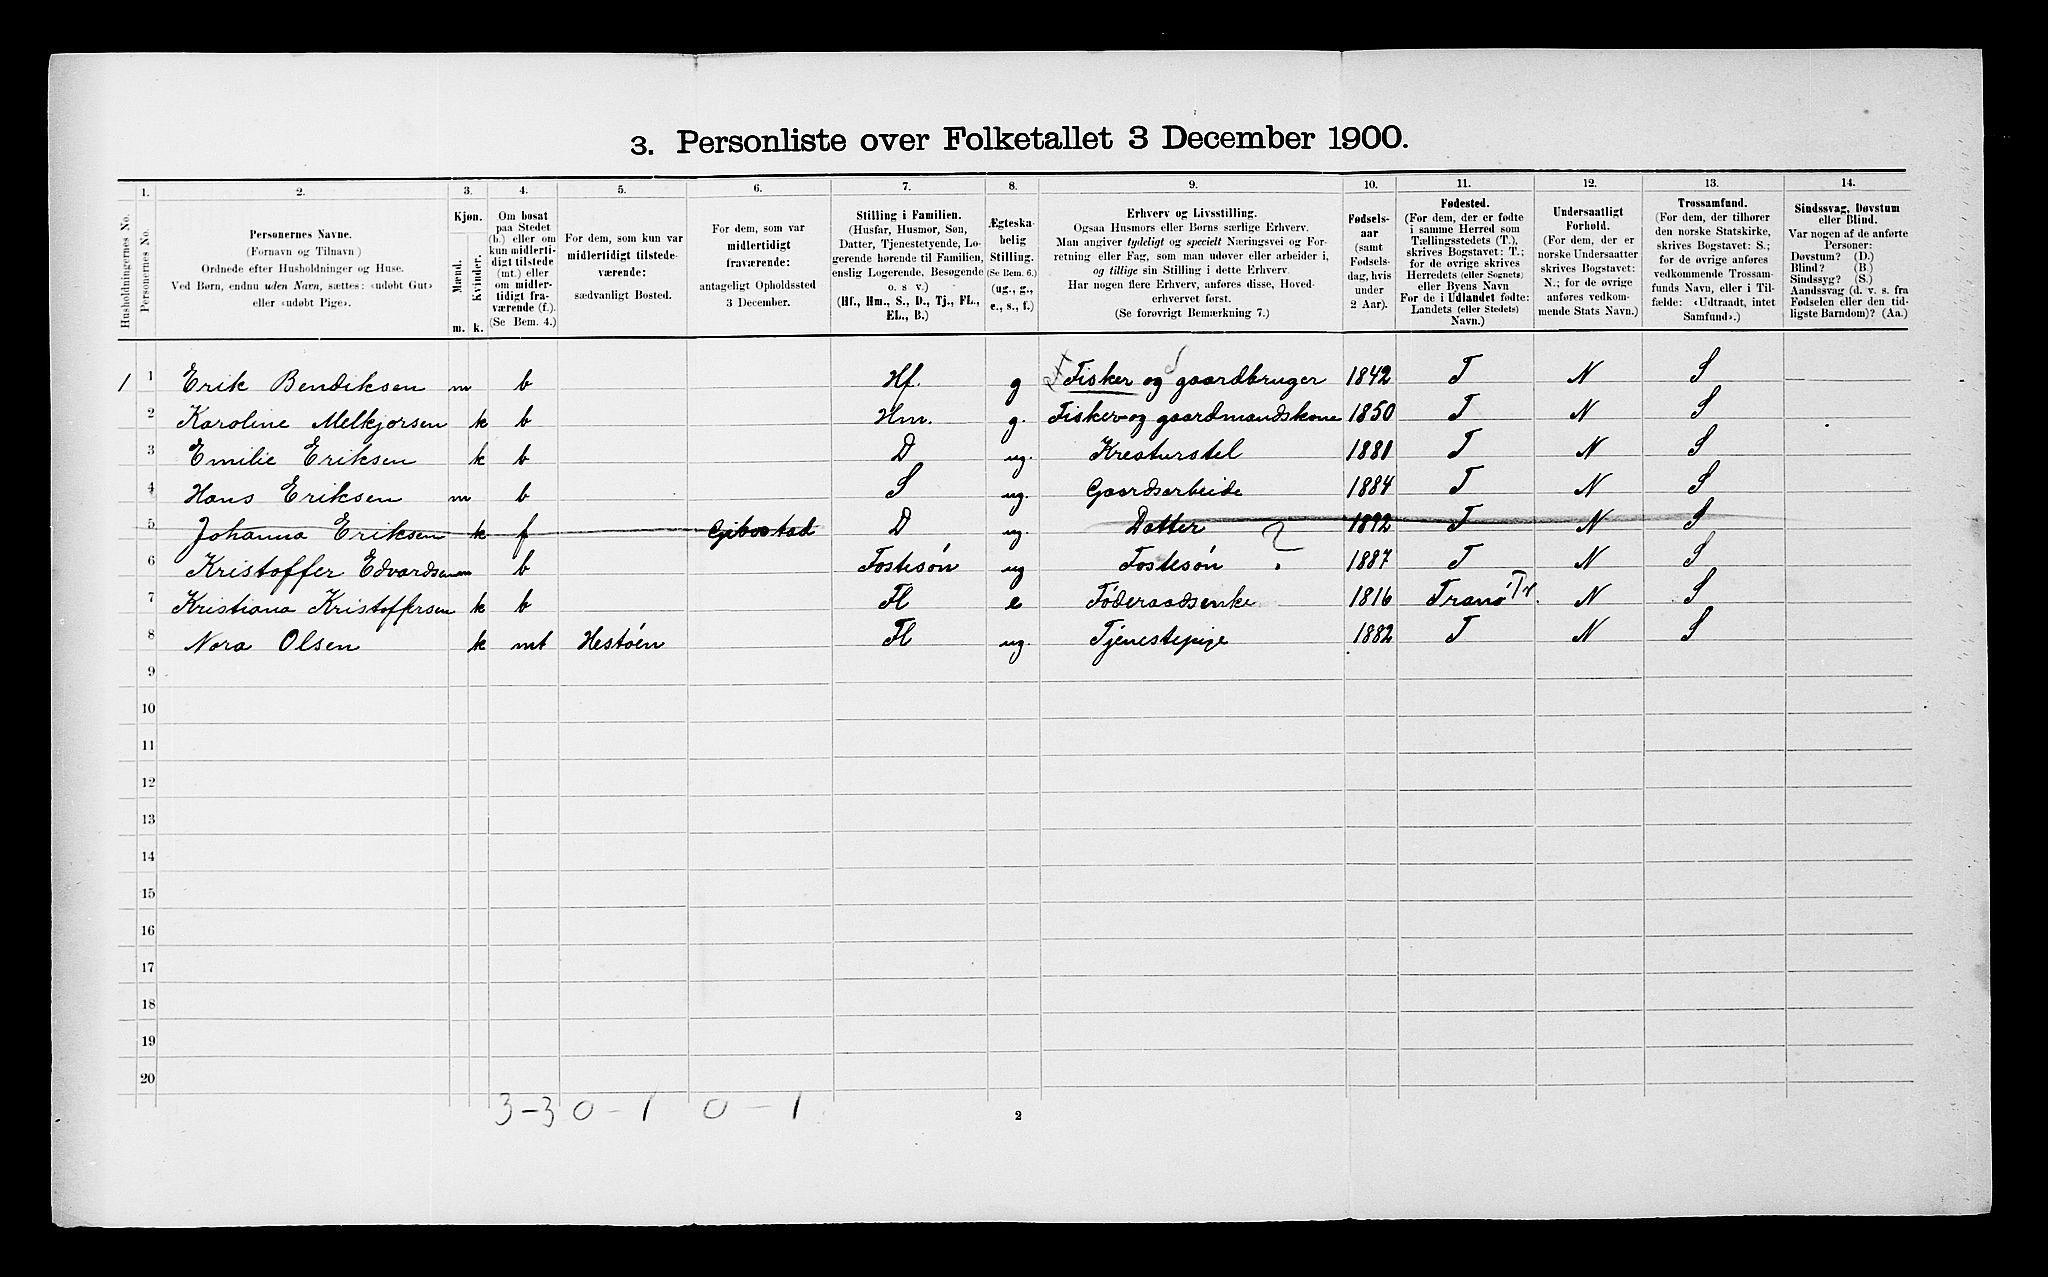 3. Personliste over Folketallet 3 December 1900.
1. 2. 3. 4. 5. 6. 7. 8. 9. 10. 11. 12. 13. 14.
Husholdningernes No.
Personernes No.
Personernes Navne.
(Fornavn og Tilnavn)
Ordnede efter Husholdninger og Huse.
Ved Børn, endnu uden Navn, sættes: «udøbt Gut»
eller «udøbt Pige».
Kjøn.
Mænd. Kvinder.
m. k.
Om bosat
paa Stedet
(b.) eller om
kun midlerti-
digt tilstede
(mt.) eller
om midler-
tidigt fra-
værende (f.).
(Se Bem. 4.)
For dem, som kun var
midlertidigt tilstede-
værende:
sædvanligt Bosted.
For dem, som var
midlertidigt
fraværende:
antageligt Opholdssted
3 December.
Stilling i Familien.
(Husfar, Husmor, Søn,
Datter, Tjenestetyende, Lo-
gerende hørende til Familien,
enslig Logerende, Besøgende
o. s v.)
(Hf., Hm., S., D., Tj., FL.,
EL., B.)
Ægteska-
belig
Stilling.
(Se Bem. 6.)
(ug., g.,
e., s., f.)
Erhverv og Livsstilling.
Ogsaa Husmors eller Børns særlige Erhverv.
Man angiver tydeligt og specielt Næringsvei og For-
retning eller Fag, som man udøver eller arbeider i,
og tillige sin Stilling i dette Erhverv.
Har nogen flere Erhverv, anføres disse, Hoved-
erhvervet først.
(Se forøvrigt Bemærkning 7.)
Fødsels-
aar
(samt
Fødsels-
dag, hvis
under
2 Aar).
Fødested.
(For dem, der er fødte
i samme Herred som
Tællingsstedets (T.),
skrives Bogstavet: T.;
for de øvrige skrives
Herredets (eller Sognets)
eller Byens Navn
For de i Udlandet fødte:
Landets (eller Stedets)
Navn.)
Undersaatligt
Forhold.
(For dem, der er
norske Undersaatter
skrives Bogstavet:
N.; for de øvrige
anføres vedkom-
mende Stats Navn.)
Trossamfund.
(For dem, der tilhører
den norske Statskirke,
skrives Bogstavet: S.;
for de øvrige anføres
vedkommende Trossam-
funds Navn, eller i Til-
fælde: «Udtraadt, intet
Samfund».)
Sindssvag, Døvstum
eller Blind.
Var nogen af de anførte
Personer:
Døvstum? (D.)
Blind? (B.)
Sindssyg? (S.)
Aandssvag (d. v. s. fra
Fødselen eller den tid-
ligste Barndom)? (Aa.)
1 1 Erik Bendiksen m b Hf. g Fisker og gaardbruger 1842 T N S
2 Karoline Melkjorsen k b Hm. g. Fisker og gaardmandskone 1850 T N S
3 Emilie Eriksen k b D ug. Kreaturstel 1881 T N S
4 Hans Eriksen m b S ug. Gaardsarbeide 1884 T N S
5 Johanna Eriksen k f Gibostad D ug. Datter 1892 T N S
6 Kristoffer Edvardsen m b Fostesön ug Fostesön ? 1887 T N S
7 Kristiana Kristoffersen k b Fl e Föderaadsenke 1816 Tranö Tr. N S
8 Nora Olsen k mt Hestöen Fl ug. Tjenestepige 1882 T N S
9
10
11
12
13
14
15
16
17
18
19
20
3-3 0-1 0-1
2